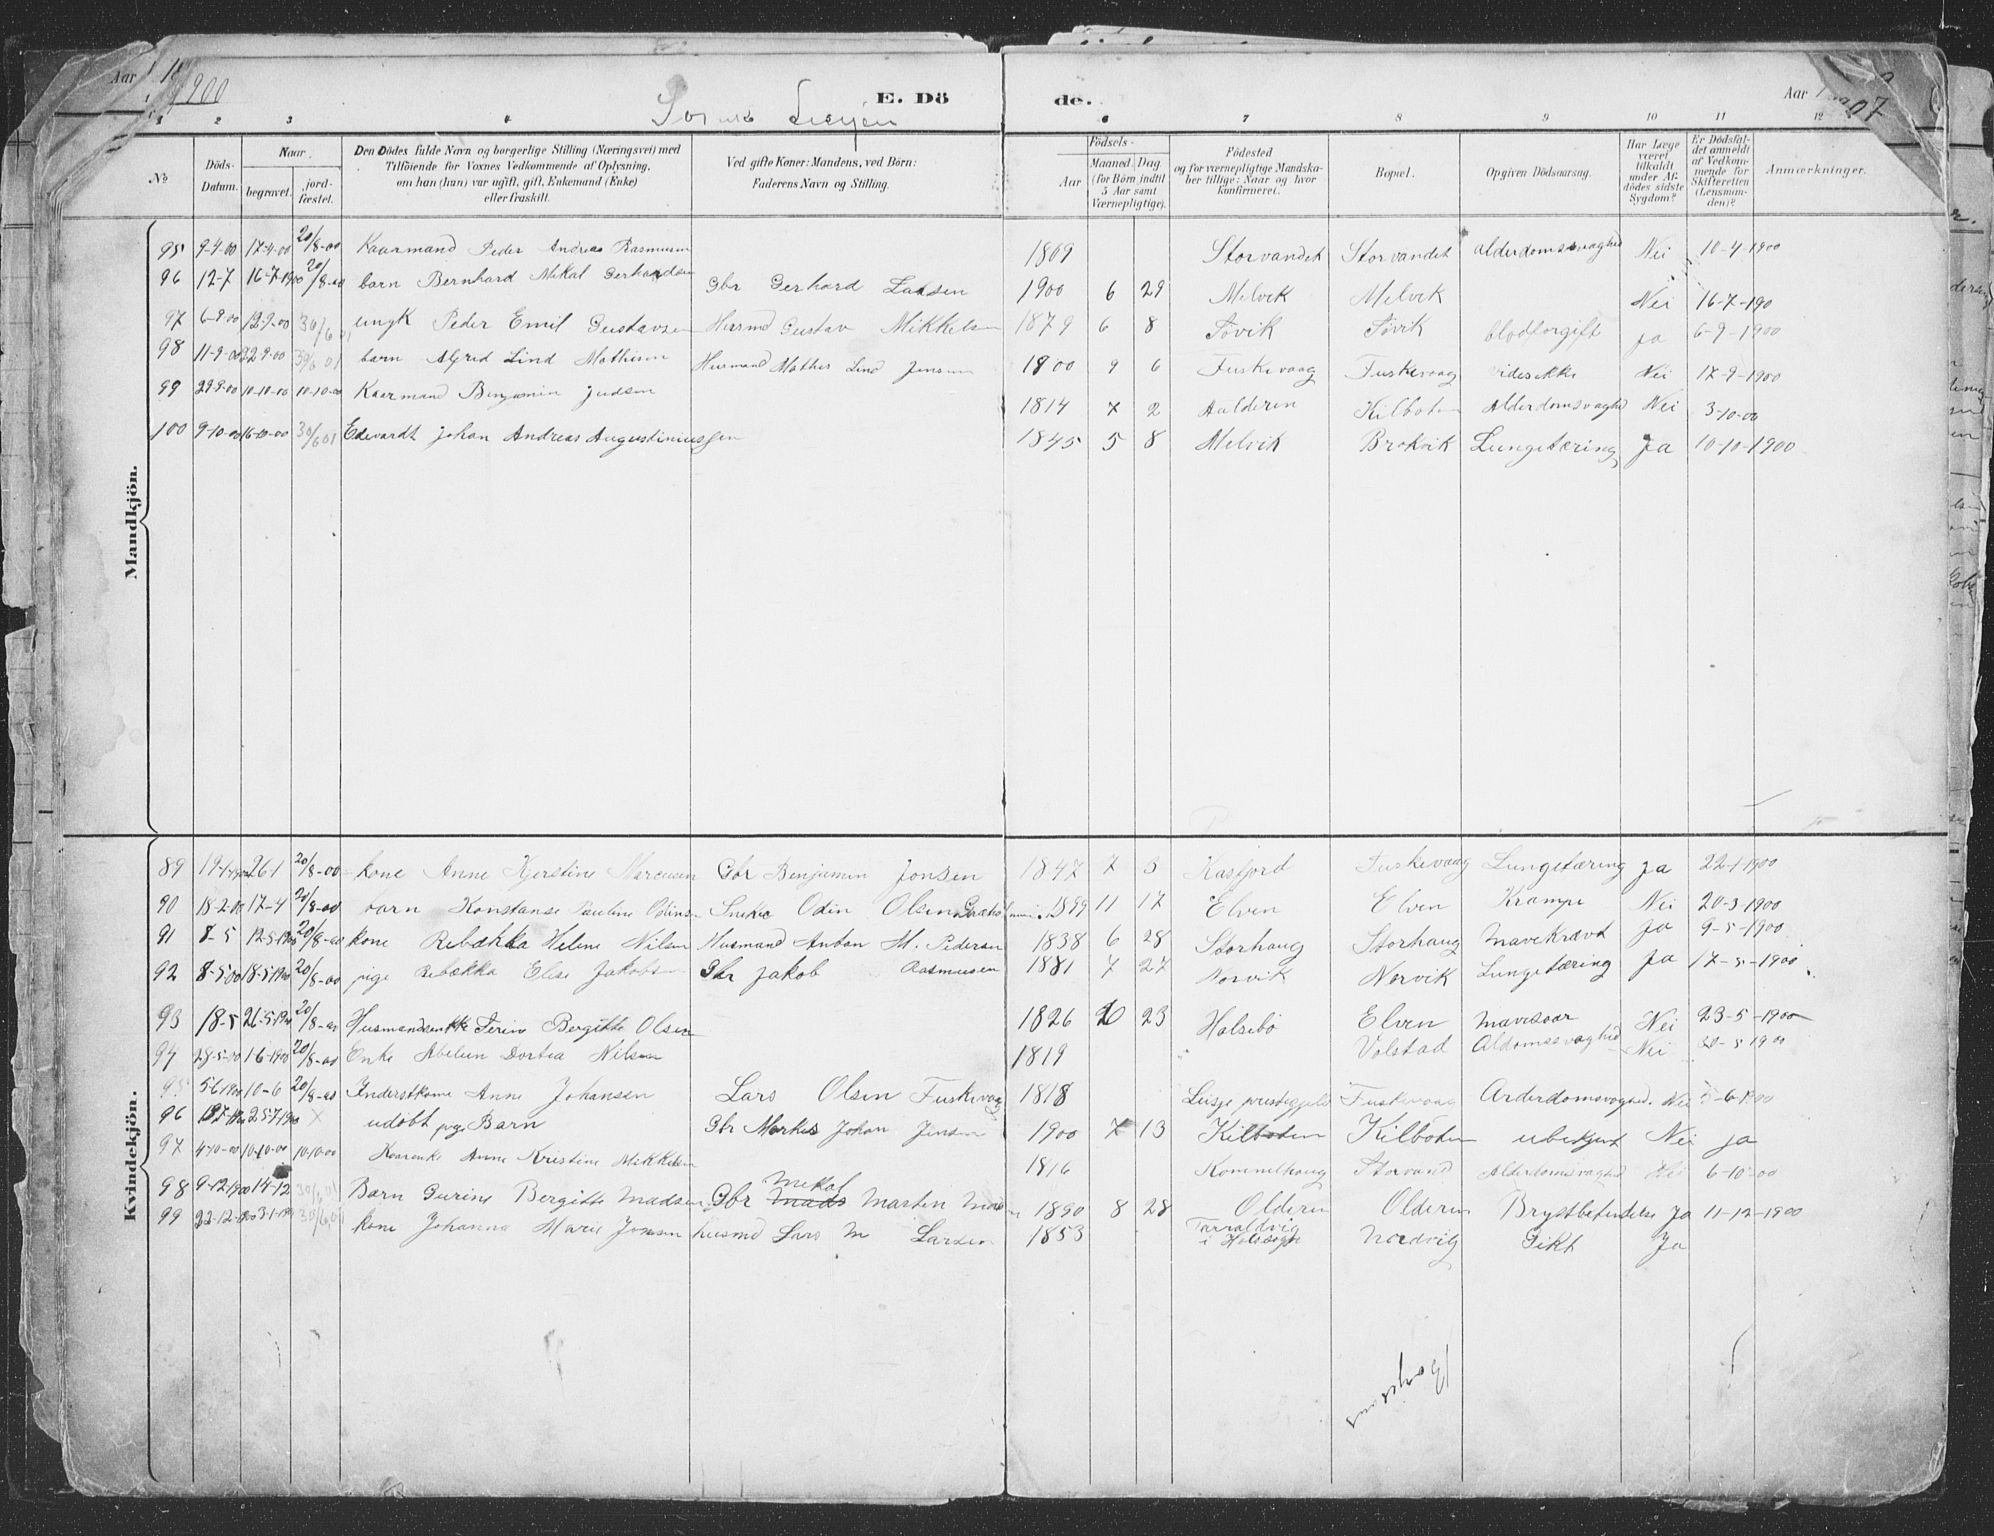 Aar 1900
E. Döde.
Aar 1
07
1 2 3 4 6 7 8 9 10 11 12
№
Döds-Datum.
Naar
begravet.
jordfæstet.
Den Dödes fulde Navn og borgerlige Stilling (Næringsvei) med Tilföiende for Voxnes Vedkommende af Oplysning, om han (hun) var ugift, gift, Enkemand (Enke) eller fraskilt.
Ved gifte Koner: Mandens, ved Börn: Faderens Navn og Stilling.
Födsels-
Aar
Maaned Dag (for Börn indtil 5 Aar samt Værnepligtige).
Födested og for værnepligtige Mandskaber tillige: Naar og hvor konfirmeret.
Bopæl.
Opgiven Dödsaarsag.
Har Læge været tilkaldt under Afdödes sidste Sygdom?
Er Dödsfaldet anmeldt af Vedkommende for Skifteretten (Lensmanden)?
Anmærkninger.
Mandkjön.
95 9-4-00 17-4-00 20/8-00 Kaarmand Peder Andreas Rasmusen 1809 Storvandet Storvandet Alderdomsvaghed Nei 10-4-1900
96 12-7 16-7-1900 20/8-00 barn Bernhard Mikal Gerhardsen Gbr Gerhard Larsen 1900 6 29 Melvik Melvik Nei 16-7-190
97 6-9-00 12-9-00 30/6 01 ungk Peder Emil Gustavsen Husmd Gustav Mikkelsen 1879 6 8 Tövik Tövik blodforgift ja 6-9-1900
98 11-9-00 22-9-00 30/6 01 barn Alfred Lind Mathisen Husmand Mathis Lind Jensen 1800 9 6 Fuskevaag Fuskevaag vides ikke Nei 17-9-1900
99 29-9-00 10-10-00 10-10-00 Kaarmand Benjamin Judsen 1814 7 2 Aalderen Kilboten Alderdomsvaghed Nei 3-10-00
100 9-10-00 16-10-00 30/6 01 Edevardt Johan Andreas Augustiniussen 1845 5 8 Melvik Brokvik Lungetæring Ja 10-10-1900
Kvindekjön.
89 19-1-1900 26-1 20/8-00 kone Anne Kjerstine Marcusen Gbr Benjamin Jonsen 1847 7 3 Kasfjord Fuskevaag Lungetæring ja 22-1-1900
90 18-2-00 17-4 20/8-00 barn Konstanse Pauline Odinsen Odin Olsen 1899 11 17 Elven Elven Krampe Nei 20-3-1900
91 8-5 12-5-1900 20/8-00 kone Rebækka Helene Nilsen Husmand Anton M. Pedersen 1838 6 28 Storhaug Storhaug Mavekrævt ja 9-5-1900
92 8-5-00 18-5-1900 20/8-00 pige Rebækka Elise Jakobsen Gbr Jakob Rasmusen 1881 7 27 Norvik Norvik Lungetæring ja 17-5-1900
93 18-5 26-5-1900 20/8-00 Husmandsenkke Bergitte Olsen 1826 10 23 Halsebö Elven Mavesaar Nei 23-5-1900
94 28-5-00 1-6-1900 20/8-00 Enke Abelein Dortea Nilsen 1819 Volstad Aldomssvaghed Nei 30-5-1900
95 5-6-1900 10-6 20/8-00 Inderstkone Anne Johansen Lars Olsen Fuskevaag 1818 prestegjeld Fuskevaag Arderdomsvaghed. Nei 5-6-1900
96 25-7-1900 × udöbt pige Barn Gbr Markus Johan Jensen 1900 7 13 Kilboten Kilboten ubekjent Nei ja
97 4-10-00 10-10-00 10-10-00 Kaarenke Anne Kristine Mikkelsen 1816 Kommelhaug Storvand Alderdomsvaghed Nei 6-10-00
98 9-12-1900 14-12 30/6 01 Barn Gurine Bergitte Madsen Gbr Mads Mekal Marten Madsen 1890 8 28 Olderen Olderen Brystbetendelse Ja 11-12-1900
99 22-12-1900 3-1-1901 30/6 01 kone Johanna Marie Jonsen Husmd Lars M Larsen 1853 Nordvig Gikt Ja